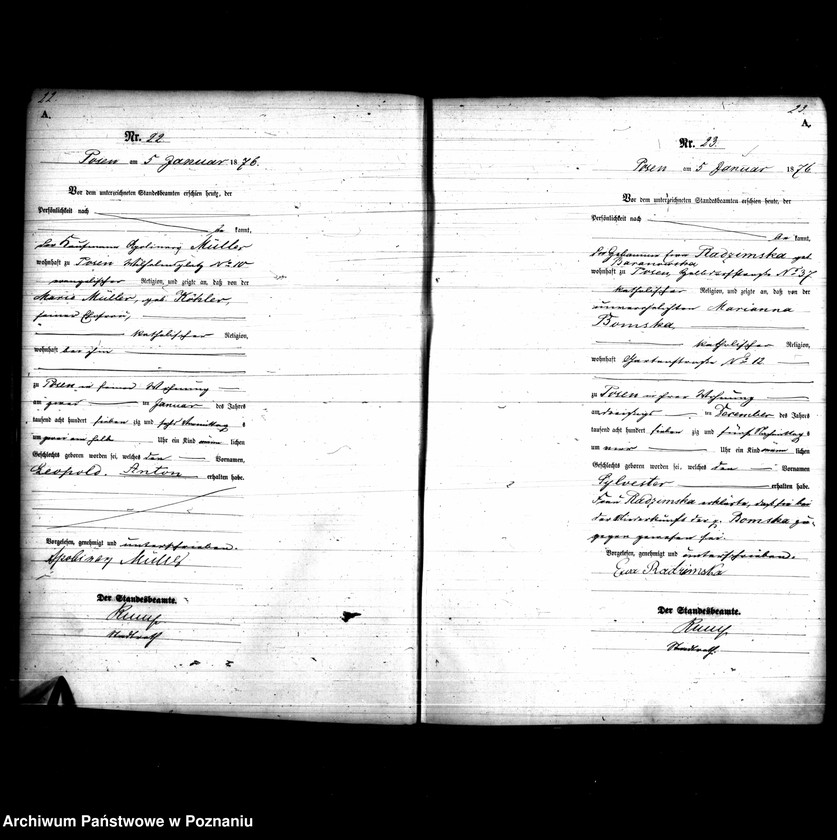 22.
A.
Nr. 22
Posen am 5 Januar 1876.
Vor dem unterzeichneten Standesbeamten erschien heute, der
Persönlichkeit nach
kannt,
der Kaufmann Apolinary Müller
wohnhaft zu Posen Wilhelmsplatz No 10
evangelischer Religion, und zeigte an, daß von der
Marie Müller, geb. Köhler,
seiner Ehefrau,
katholischer Religion,
wohnhaft bei ihm
zu Posen in seiner Wohnung
am zwei ten Januar des Jahres
tausend acht hundert sieben zig und sechs Vormittags
um zwei ein halb Uhr ein Kind männ lichen
Geschlechts geboren worden sei, welches den Vornamen,
Leopold Anton erhalten habe.
Vorgelesen, genehmigt und unterschrieben.
Apolinary Müller
Der Standesbeamte.
Stadtrath
23.
A.
Nr. 23.
Posen am 5 Januar 1876
Vor dem unterzeichneten Standesbeamten erschien heute, der
Persönlichkeit nach
kannt,
die Hebamme Ewa Radzimska geb.
Baranowska
wohnhaft zu Posen, No 37
katholischer Religion, und zeigte an, daß von der
unverehelichten Marianna
Bomska
katholischer Religion,
wohnhaft Gartenstraße No 12
zu Posen in ihrer Wohnung
am dreißigs ten December des Jahres
tausend acht hundert sieben zig und fünf Nachmittags
um neun Uhr ein Kind männ lichen
Geschlechts geboren worden sei, welches den Vornamen
Sylvester erhalten habe.
Frau Radzimska erklärte, daß sie bei
der Niederkunft der p. Bomska zu-
gegen gewesen sei.
Vorgelesen, genehmigt und unterschrieben.
Ewa Radzimska
Der Standesbeamte.
Stadtrath.
Archiwum Państwowe w Poznaniu